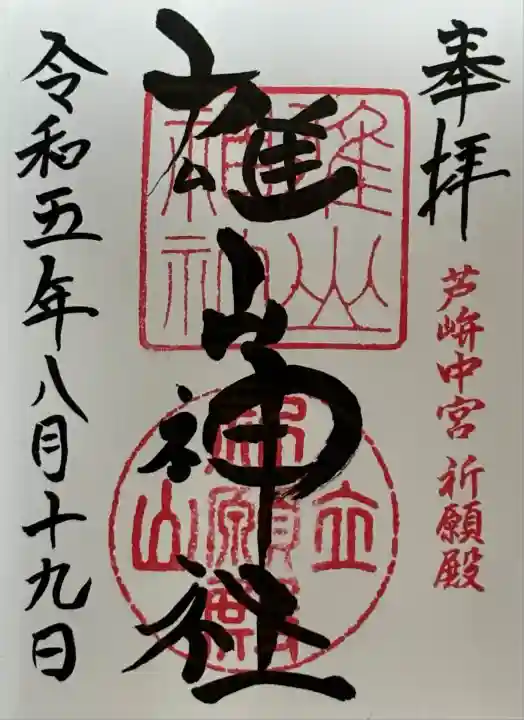 奉拝
芦峅中宮 祈願殿
雄山神社
雄山
神社
立山
祈願殿
令和五年八月十九日